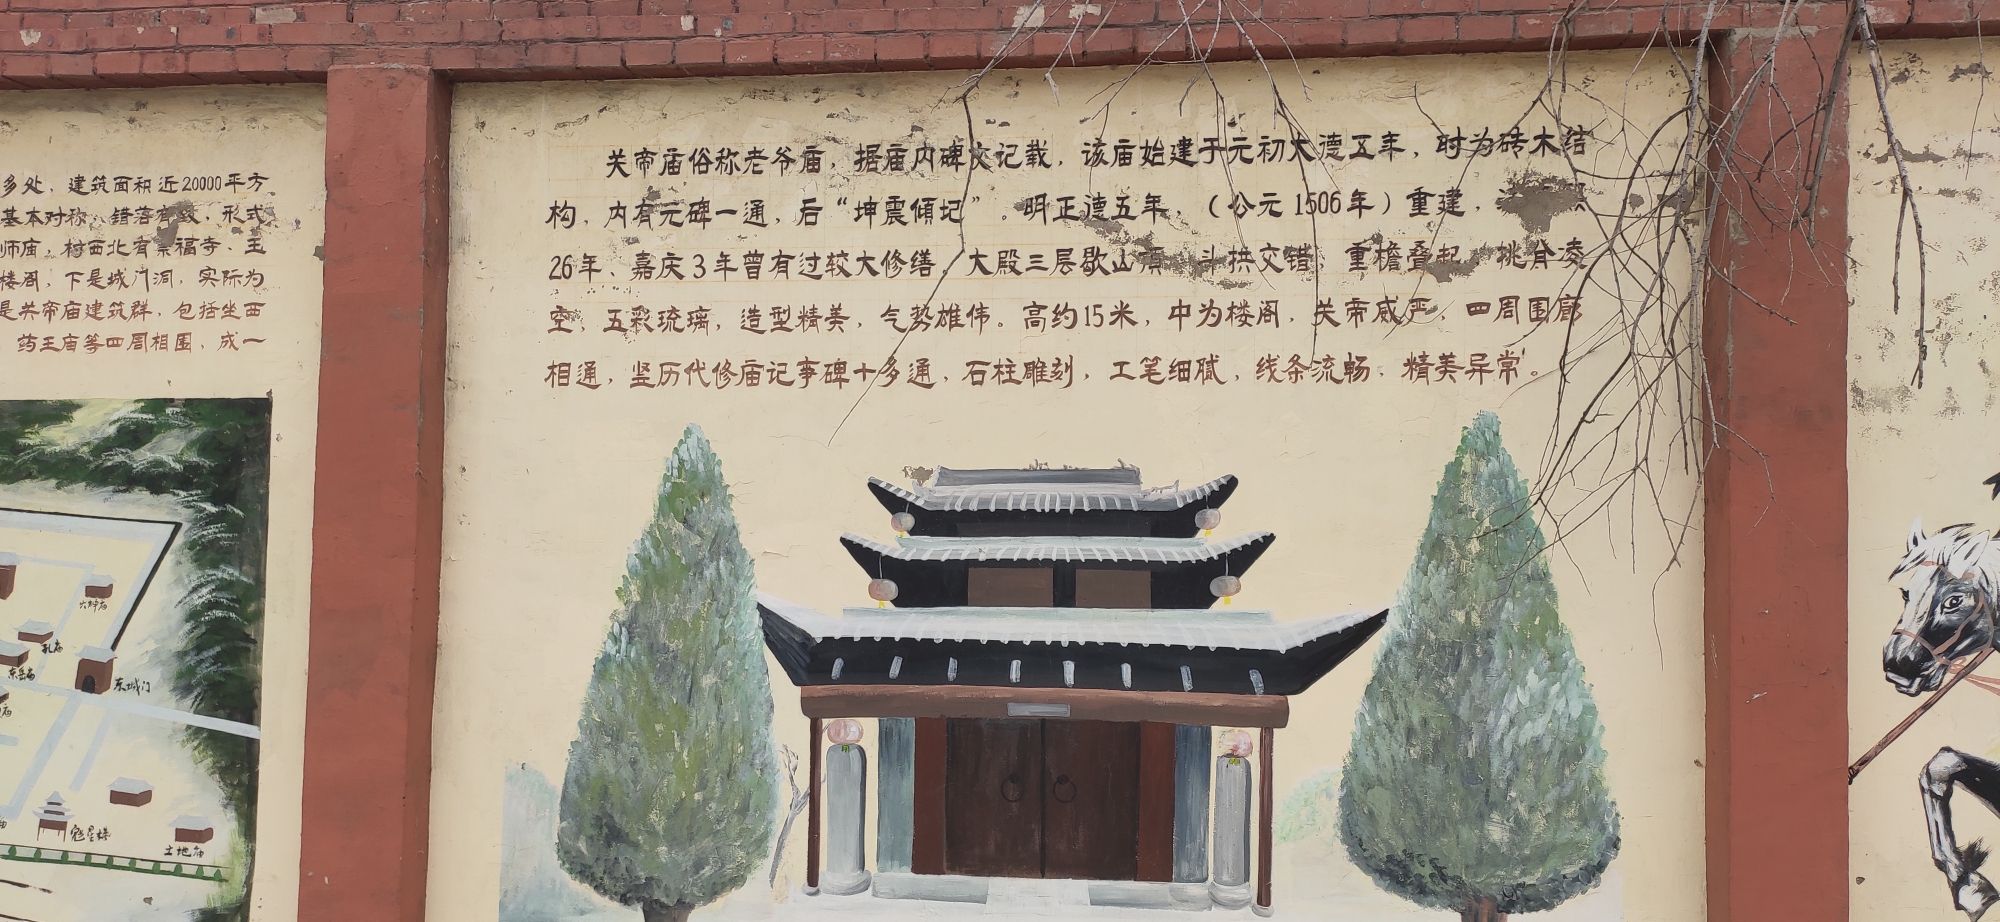 多处，建筑面积近20000平方
基本对称，错落有致，形式
师庙，村西北有崇福寺、玉
楼阁，下是城门洞，实际为
是关帝庙建筑群，包括坐西
药王庙等四周相围，成一
关帝庙俗称老爷庙，据庙内碑文记载，该庙始建于元初大德五年，时为砖木结
构，内有元碑一通，后“坤震倾圮”。明正德五年，（公元1506年）重建，
26年、嘉庆3年曾有过较大修缮。大殿三层歇山顶，斗拱交错，重檐叠起，挑角凌
空，五彩琉璃，造型精美，气势雄伟。高约15米，中为楼阁，关帝威严，四周围廊
相通，竖历代修庙记事碑十多通，石柱雕刻，工笔细腻，线条流畅，精美异常。
火神庙
孔庙
东岳庙
东城门
庙
魁星楼
土地庙